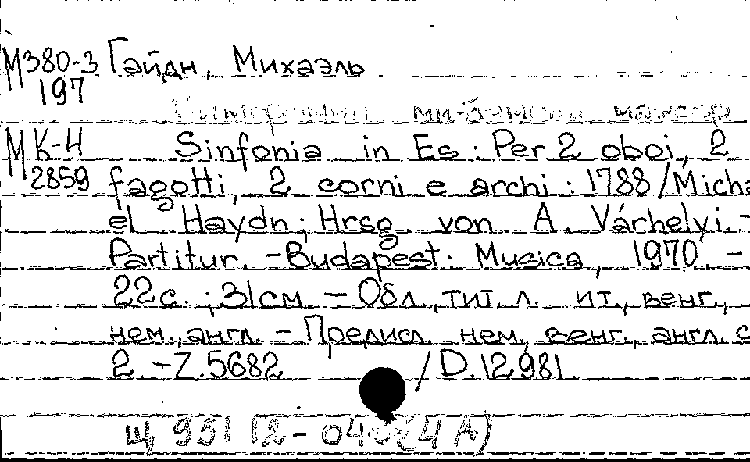 М380-3 Гайдн, Михаэль
197
ми-бемоль мажор
М К-4 Sinfonia in Es : Per 2 oboi, 2
2859 fagotti, 2 corni e archi : 1788 / Micha
el Haydn ; Hrsg. von A. Várhelyi. -
Partitur. - Budapest : Musica, 1970. -
22с. ; 31см. - Обл., тит. л. ит., венг.,
нем., англ. - Предисл. нем., венг., англ. с
2. - Z.5682 / D.12981
Щ 951 12-04 (4 А)